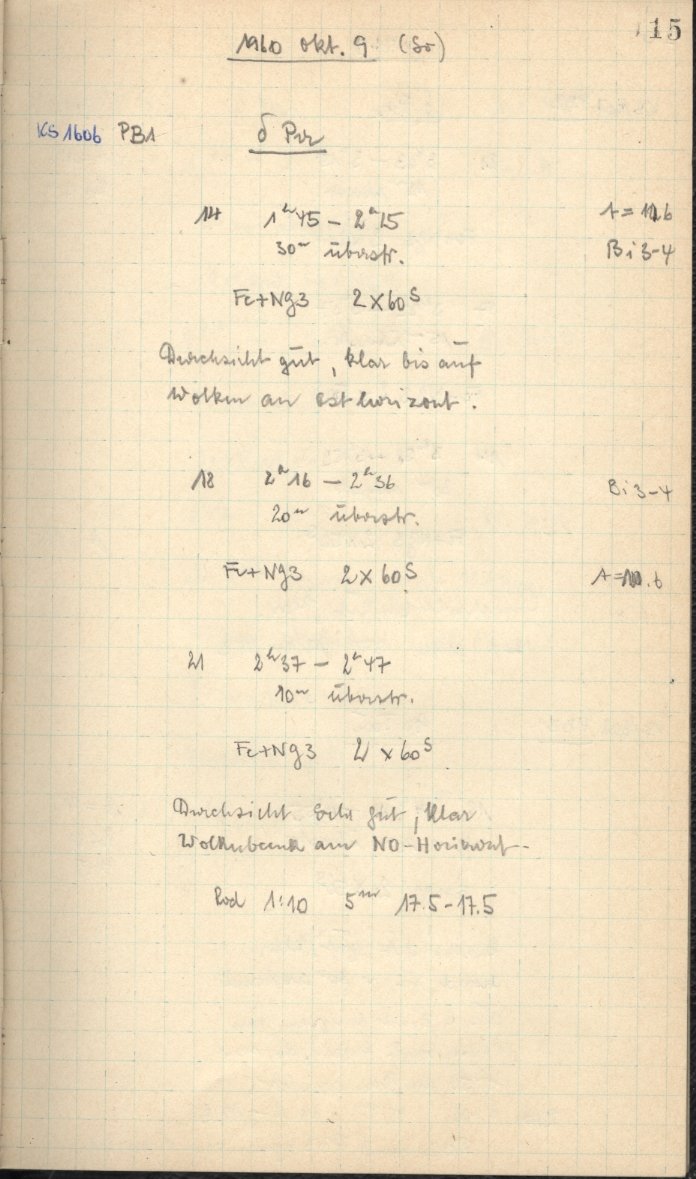 15
1960 Okt. 9 (So)
KS1606 PB1 δ Per
14 1ʰ45 – 2ʰ15 t =
30ᵐ überstr. Bi 3-4
Fc+Ng3 2×60ˢ
Durchsicht gut, klar bis auf
Wolken an Osthorizont.
18 2ʰ16 – 2ʰ36 Bi 3-4
20ᵐ überstr.
Fc+Ng3 2×60ˢ A =
21 2ʰ37 – 2ʰ47
10ᵐ überstr.
Fc+Ng3 2×60ˢ
Durchsicht sehr gut, klar
Wolkenbank am NO-Horizont.
Rod 1:10 5ᵐ 17.5-17.5